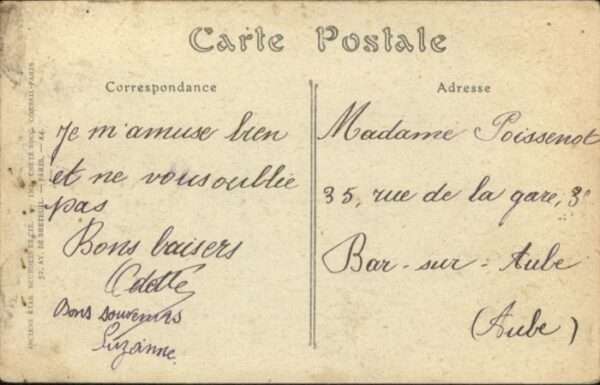 Carte Postale
Correspondance
Adresse
Je m'amuse bien
et ne vous oublie
pas
Bons baisers
Odette
Bons souvenirs
Suzanne
Madame Poissenot
35, rue de la gare, 3
Bar-sur-Aube
(Aube)